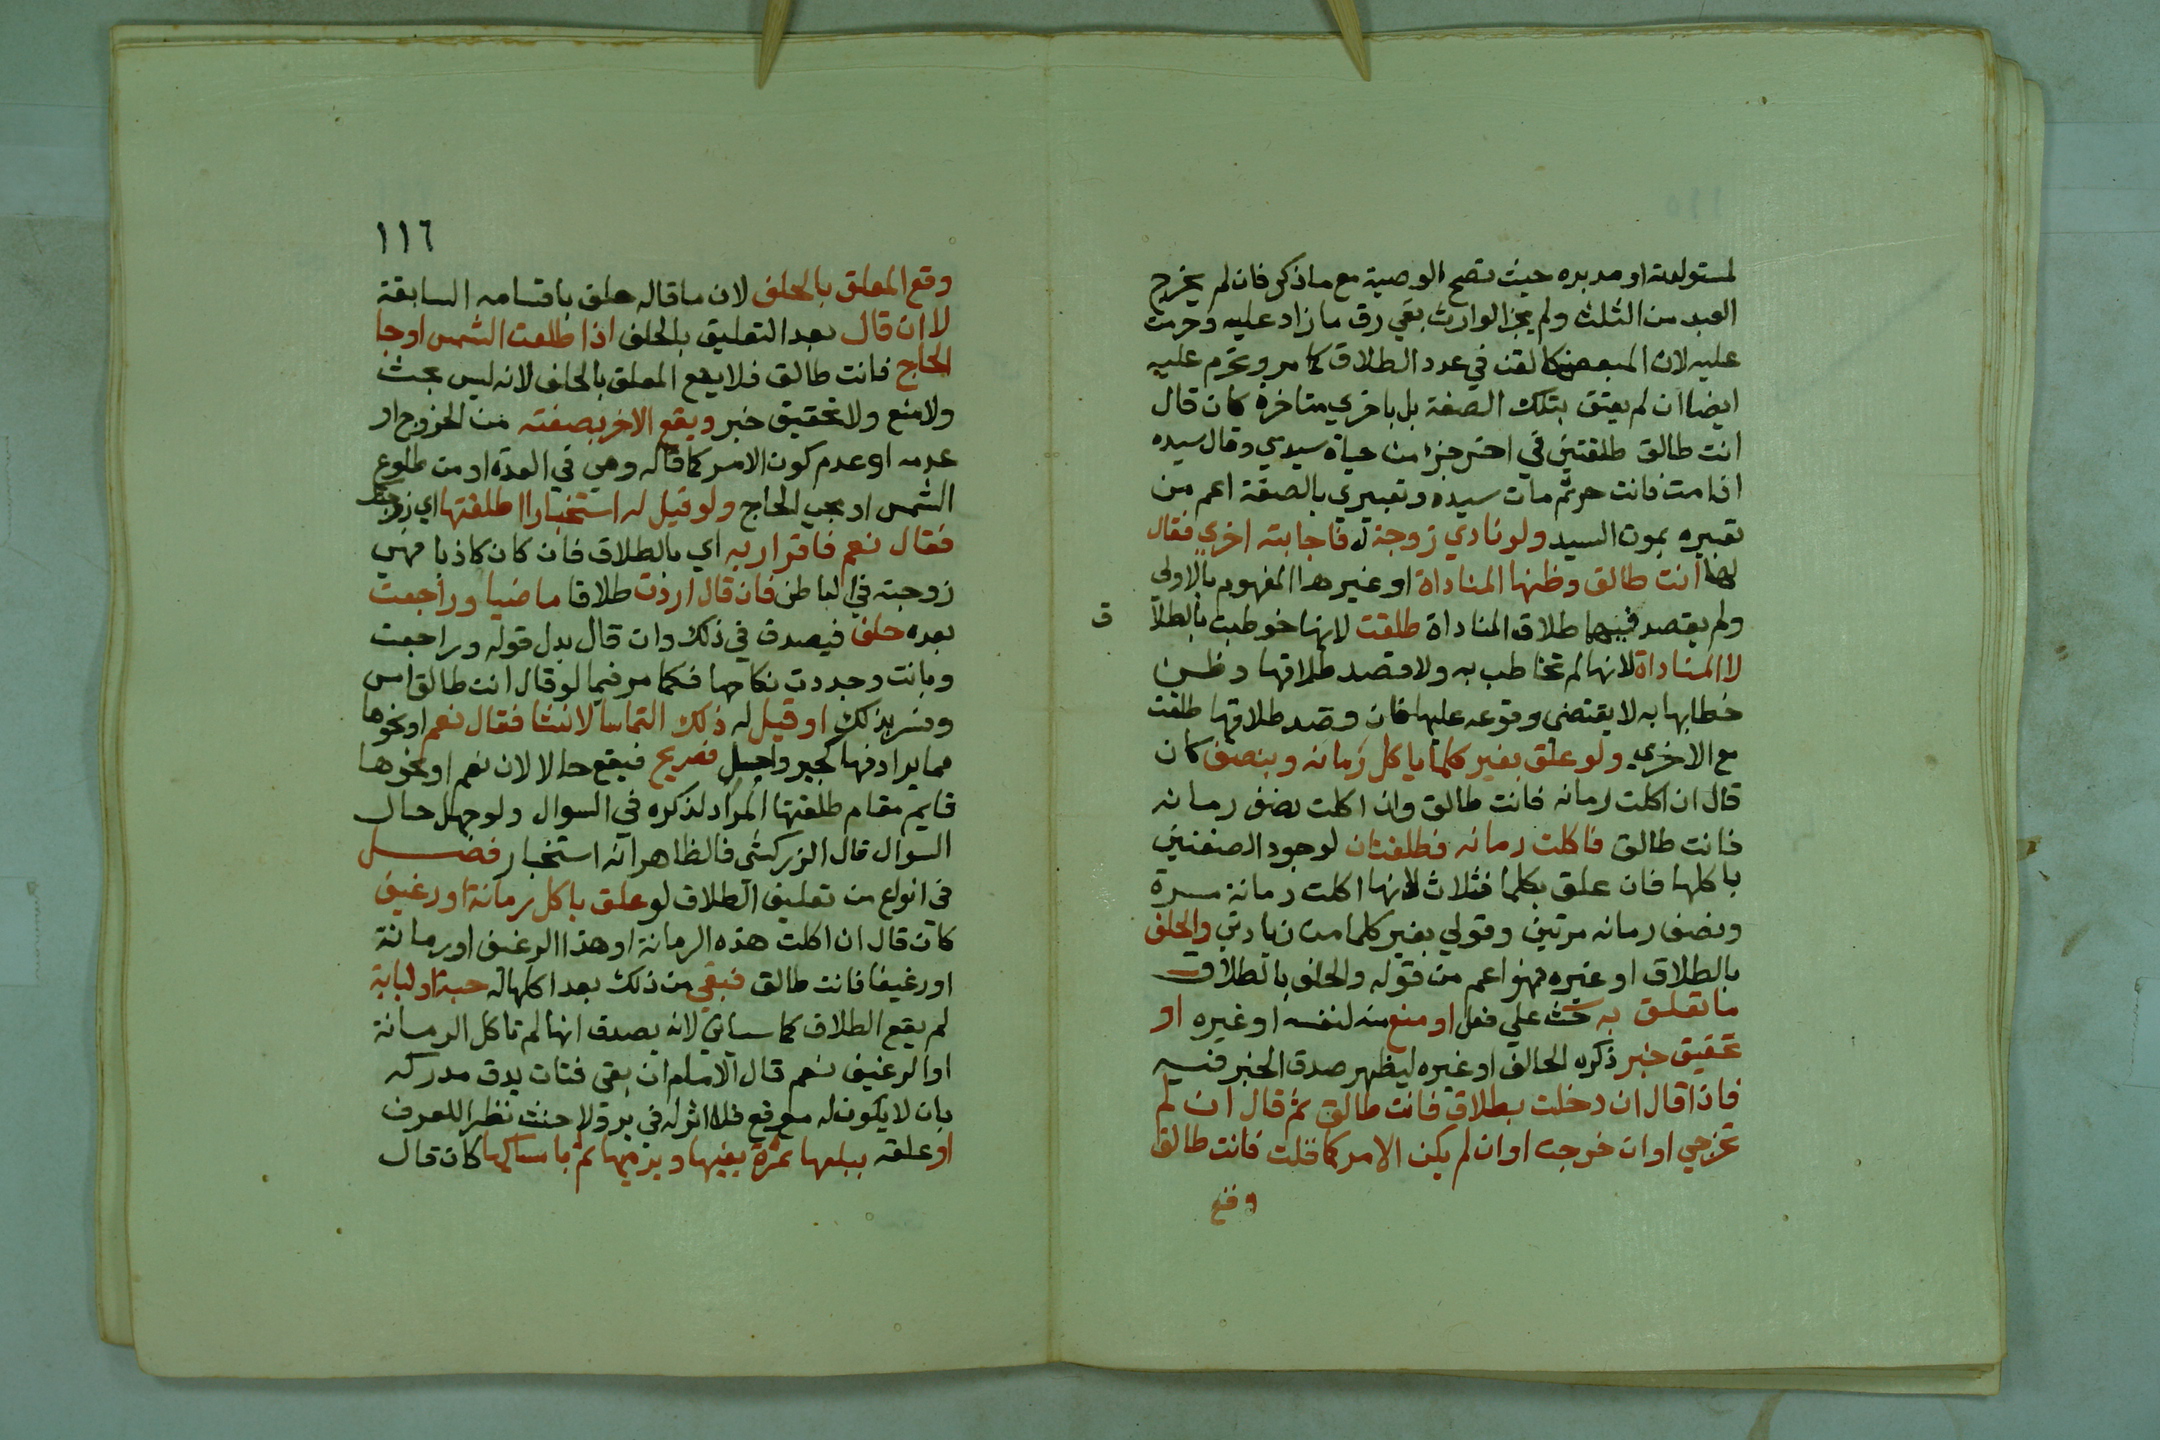 لمستولدته او مدبره حيث تصح الوصية مع ما ذكر فان لم يخرج
العبد من الثلث ولم يجز الوارث بقي رق ما زاد عليه وحرمت
عليه لان المبعض كالقن في عدد الطلاق كما مر وتحرم عليه
ايضا ان لم يعتق بتلك الصفة بل باخري متاخرة كان قال
انت طالق طلقتين في اخر جزء من حياة سيدي وقال سيده
اذا مت فانت حر ثم مات سيده وتعبيري بالصفة اعم من
تعبيره بموت السيد ولو نادي زوجة له فاجابته اخري فقال
لها انت طالق وظنها المناداة او غير هذا المفهوم بالاولي
ولم يقصد فيهما طلاق المناداة طلقت لانها خوطبت بالطلا
ق
لا المناداة لانها لم تخاطب به ولا قصد طلاقها وظن
خطابها به لا يقتضي وقوعه عليها فان قصد طلاقها طلقت
مع الاخري ولو علق بغير كلما باكل رمانه وبنصف كان
قال ان اكلت رمانه فانت طالق وان اكلت نصف رمانه
فانت طالق فاكلت رمانه فطلقتان لوجود الصفتين
باكلها فان علق بكلما فثلاث لانها اكلت رمانة مرة
ونصف رمانه مرتين وقولي بغير كلما من زيادتي والحلف
بالطلاق او غيره فهو اعم من قوله والحلف بالطلاق
ما تعلق به حث علي فعل او منع منه لنفسه او غيره او
تحقيق خبر ذكره الحالف او غيره ليظهر صدق الخبر فيه
فاذا قال ان دخلت بطلاق فانت طالق ثم قال ان لم
تخرجي او ان خرجت او ان لم يكن الامر كما قلت فانت طالق
وقع
١١٦
وقع المعلق بالحلف لان ما قاله حلف باقسامه السابقة
لا ان قال بعد التعليق بالحلف اذا طلعت الشمس او جا
الحاج فانت طالق فلا يقع المعلق بالحلف لانه ليس بحث
ولا منع ولا تحقيق خبر ويقع الاخر بصفته من الخروج او
عدمه او عدم كون الامر كما قاله وهي في العدة او من طلوع
الشمس او مجي الحاج ولو قيل له استخبارا اطلقتها اي زوجتك
فقال نعم فاقرار به اي بالطلاق فان كان كاذبا فهي
زوجته في الباطن فان قال اردت طلاقا ماضيا وراجعت
بعده حلف فيصدق في ذلك وان قال بدل قوله وراجعت
وبانت وجددت نكاحها فكما مر فيما لو قال انت طالق امس
وفسر بذلك او قيل له ذلك التماسا لانشا فقال نعم او نحوها
مما يرادفها كجير واجل فصريح فيقع حالا لان نعم او نحوها
قايم مقام طلقتها المراد لذكره في السوال ولو جهل حال
السوال قال الزركشي فالظاهر انه استخبار فصل
في انواع من تعليق الطلاق لو علق باكل رمانة او رغيف
كان قال ان اكلت هذه الرمانة او هذا الرغيف او رمانة
او رغيفا فانت طالق فبقي من ذلك بعد اكلها له حبة او لبابة
لم يقع الطلاق كما سياتي لانه يصدق انها لم تاكل الرمانة
او الرغيف نعم قال الامام ان بقي فتات يدق مدركه
بان لا يكون له موقع فلا اثر له في بر ولا حنث نظرا للعرف
او علقه ببلعها تمرة بفيها وبرميها ثم بامساكها كان قال